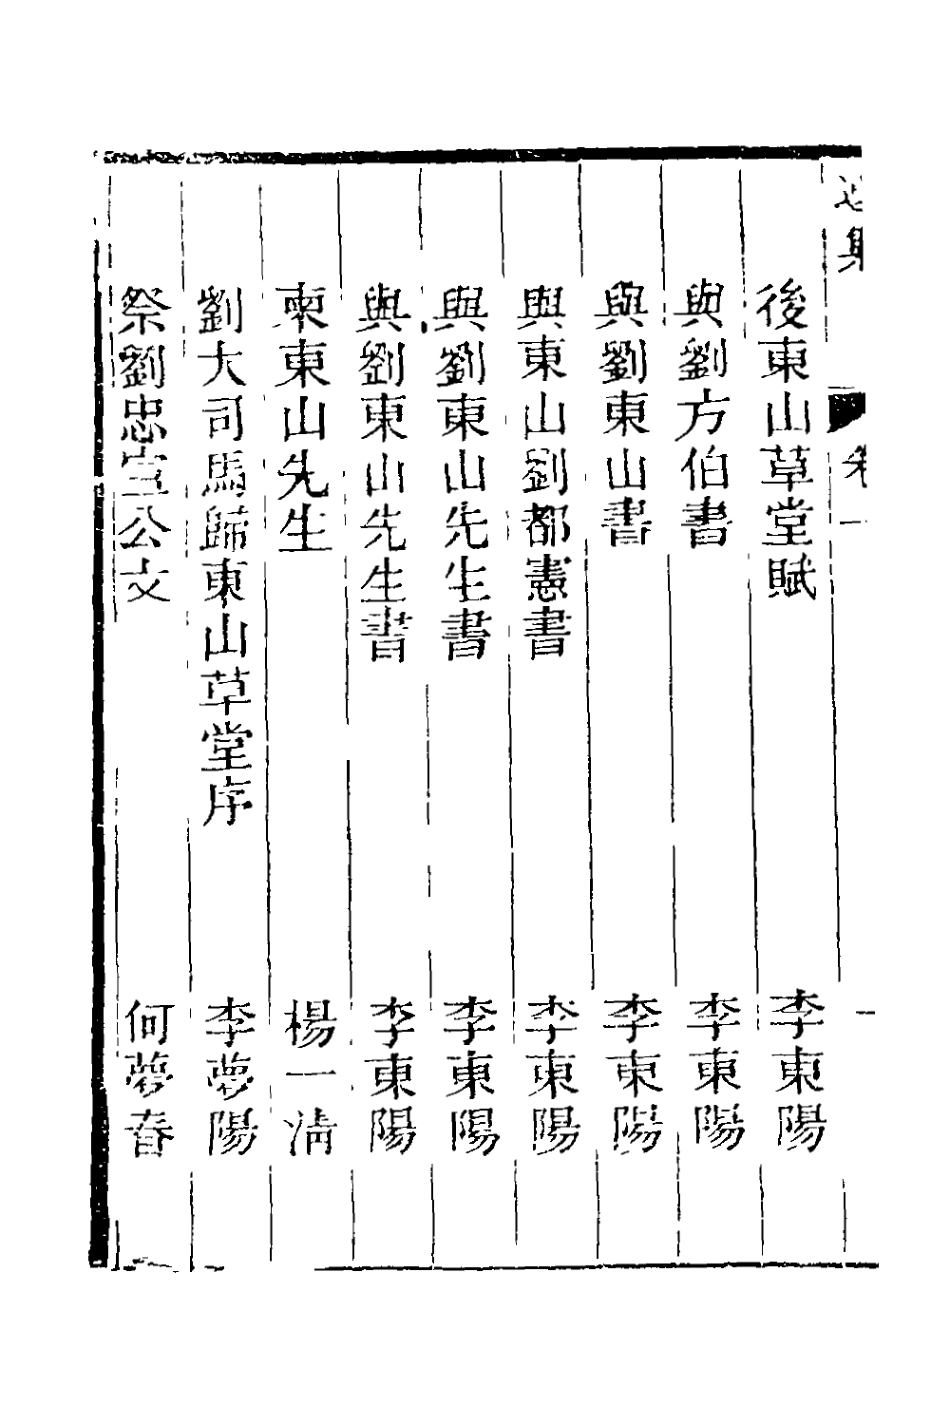 後東山草堂賦 李東陽
與劉方伯書 李東陽
與劉東山書 李東陽
與東山劉都憲書 李東陽
與劉東山先生書 李東陽
與劉東山先生書 李東陽
柬東山先生 楊一淸
劉大司馬歸東山草堂序 李夢陽
祭劉忠宣公文 何夢春